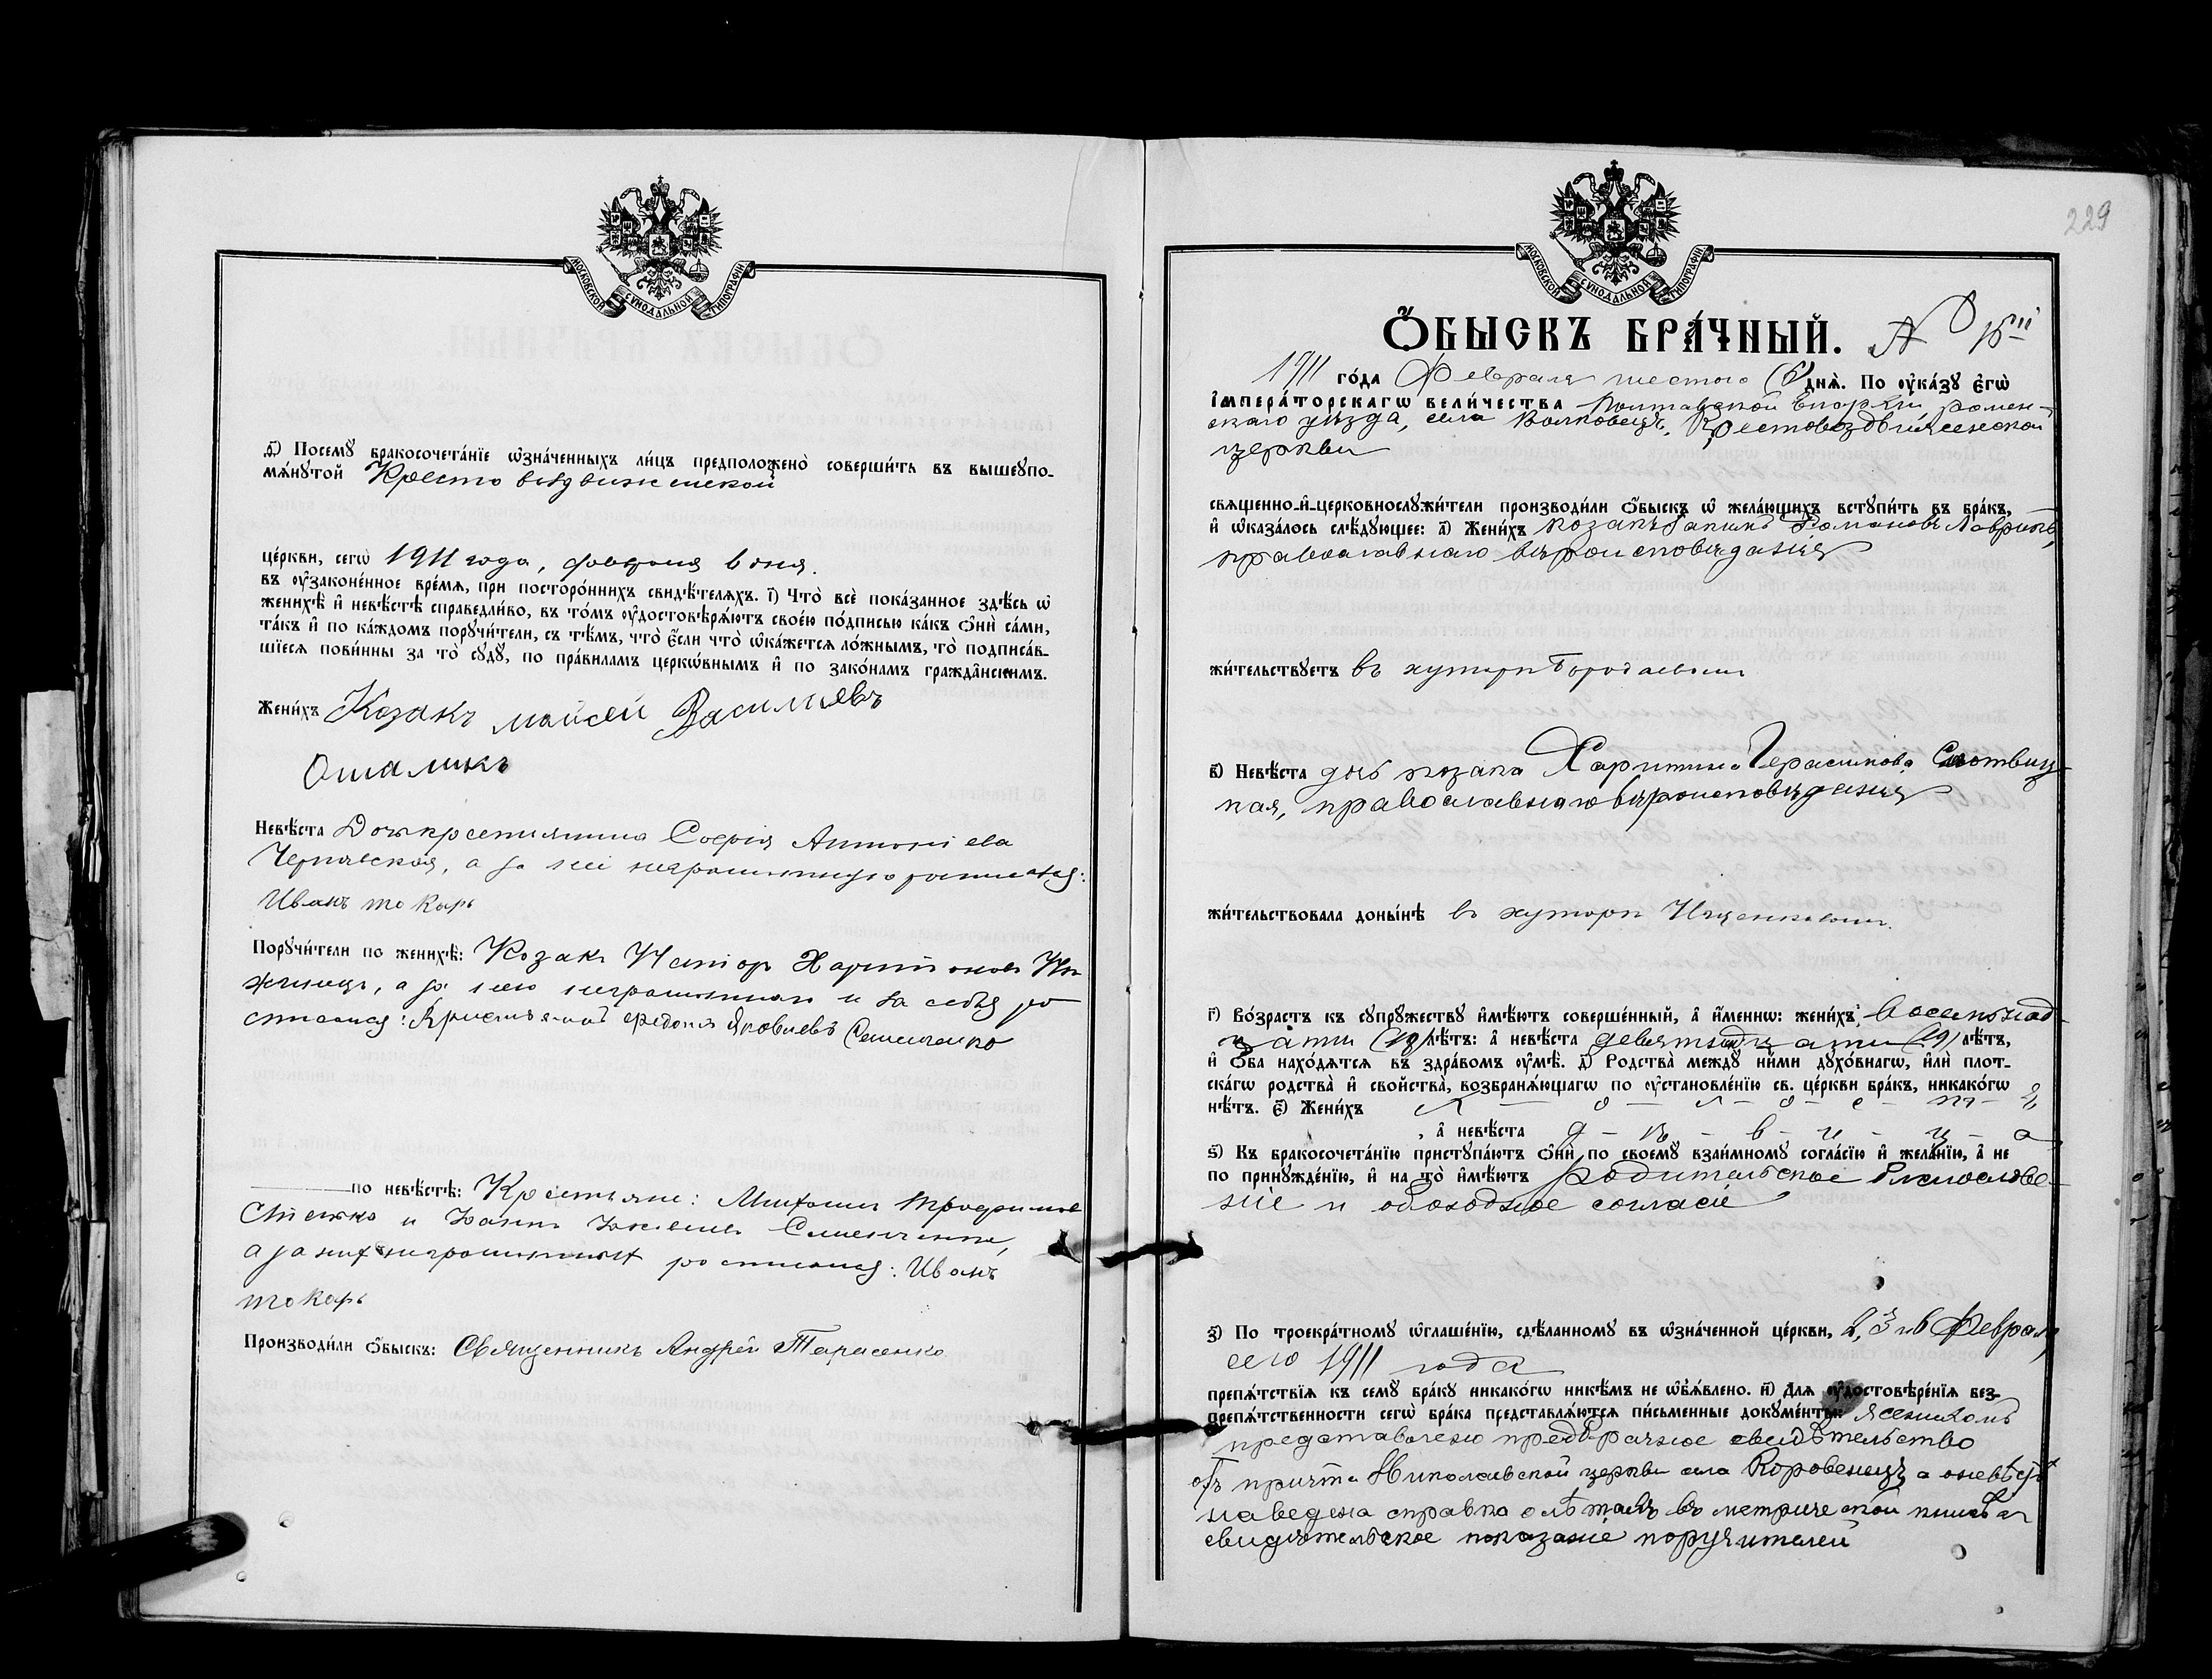 МОСКОВСКОЙ СУНОДАЛЬНОЙ ТИПОГРАФІИ
ѳ҃) Посемꙋ бракосочета́нїе ѡ҆зна́ченныхъ ли́цъ предположено̀ соверши́ть въ вышеꙋпо-
мѧ́нꙋтой Кресто воздвиженской
це́ркви, сегѡ̀ 1911 года, февраля 6 дня.
въ ᲂу҆зако́ненное вре́мѧ, при посторо́ннихъ свидѣ́телѧхъ. і҃) Что̀ всѐ пока́занное здѣ́сь ѡ҆
женихѣ̀ и҆ невѣ́стѣ справедли́во, въ то́мъ ᲂу҆достовѣрѧ́ютъ свое́ю по́дписью ка́къ ѻ҆нѝ са́ми,
та́къ и҆ по ка́ждомъ порꙋчи́тели, съ тѣ́мъ, что̀ є҆́сли что̀ ѡ҆ка́жетсѧ ло́жнымъ, то̀ подписа́в-
шїесѧ пови́нны за то̀ сꙋдꙋ̀, по пра́виламъ церко́внымъ и҆ по зако́намъ гражда́нскимъ.
Жени́хъ Козакъ Мойсей Васильевъ
Ошамикъ
Невѣ́ста Доч крестянина Софія Антоніева
Чернявская, а за неё неграмотную росписался:
Иванъ Токарь
Порꙋчи́тели по женихѣ̀: Козакъ Несторъ Харитоновъ
а за него неграмотнаго и за себя ро
списался: Кристьянинъ Федотъ Яковлевъ Семеченко
по невѣ́стѣ: Крестьяне: Михаилъ Трофимовъ
Стежко и
а за них неграмотных росписался: Иванъ
Токарь
Производи́ли ѻ҆́быскъ: Священникъ Андрей Тарасенко.
229
МОСКОВСКОЙ СУНОДАЛЬНОЙ ТИПОГРАФІИ
Ѻ҆́БЫСКЪ БРА́ЧНЫЙ. №
1911 го́да Февраля шестого (6) днѧ̀. По ᲂу҆ка́зꙋ є҆гѡ̀
і҆мпера́торскагѡ вели́чества Полтавской Епархіи, ромен-
скаго уезда, села Волковецъ, Крестовоздвиженской
церкви
свѧще́нно-и҆-церковнослꙋжи́тели производи́ли ѻ҆́быскъ ѡ҆ жела́ющихъ встꙋпи́ть въ бра́къ,
и҆ ѡ҆каза́лось слѣ́дꙋющее: а҃) Жени́хъ козакъ Романовъ Лавринъ,
православнаго вѣроисповѣданія
жи́тельствꙋетъ въ хуторѣ Бородаевым
в҃) Невѣ́ста дочь козака Харитина Герасимова Слотвиц-
кая, православнаго вѣроисповѣданія
жи́тельствовала доны́нѣ въ хуторѣ Ищенковом.
г҃) Во́зрастъ къ сꙋпрꙋ́жествꙋ и҆мѣ́ютъ соверше́нный, а҆ и҆́меннѡ: жени́хъ восемнад-
цати (18) лѣ́тъ: а҆ невѣ́ста девятнадцати (19) лѣ́тъ,
и҆ ѻ҆́ба нахо́дѧтсѧ въ здра́вомъ ᲂу҆мѣ̀. д҃) Родства̀ междꙋ̀ ни́ми дꙋхо́внагѡ, и҆лѝ плот-
ска́гѡ родства̀ и҆ сво́йства̀, возбранѧ́ющагѡ по ᲂу҆становле́нїю св. це́ркви бра́къ, никако́гѡ
нѣ́тъ. є҃) Жени́хъ х – о – л – о – с – т – ъ
, а҆ невѣ́ста д – ѣ – в – и – ц – а
ѕ҃) Къ бракосочета́нїю пристꙋпа́ютъ ѻ҆нѝ по своемꙋ̀ взаи́мномꙋ согла́сїю и҆ жела́нїю, а҆ не
по принꙋжде́нїю, и҆ на то̀ и҆мѣ́ютъ родительское благослове-
ніе и обоюдное согласіе
з҃) По троекра́тномꙋ ѡ҆глаше́нїю, сдѣ́ланномꙋ въ ѡ҆зна́ченной це́ркви, 2, 3 и 6 Февраля
сего 1911 года
препѧ́тствїѧ къ семꙋ̀ бра́кꙋ никако́гѡ никѣ́мъ не ѡ҆б̾ѧ́влено. и҃) Длѧ ᲂу҆достовѣре́нїѧ без-
препѧ́тственности сегѡ̀ бра́ка представлѧ́ютсѧ пи́сьменные докꙋме́нты: женихомъ
представлено предбрачное свидѣтельство
отъ причта Николаевской церкви села Коровенецъ а о невѣстѣ
наведена справка о лѣтахъ въ метрической книгѣ и
свидѣтельское показаніе поручителей